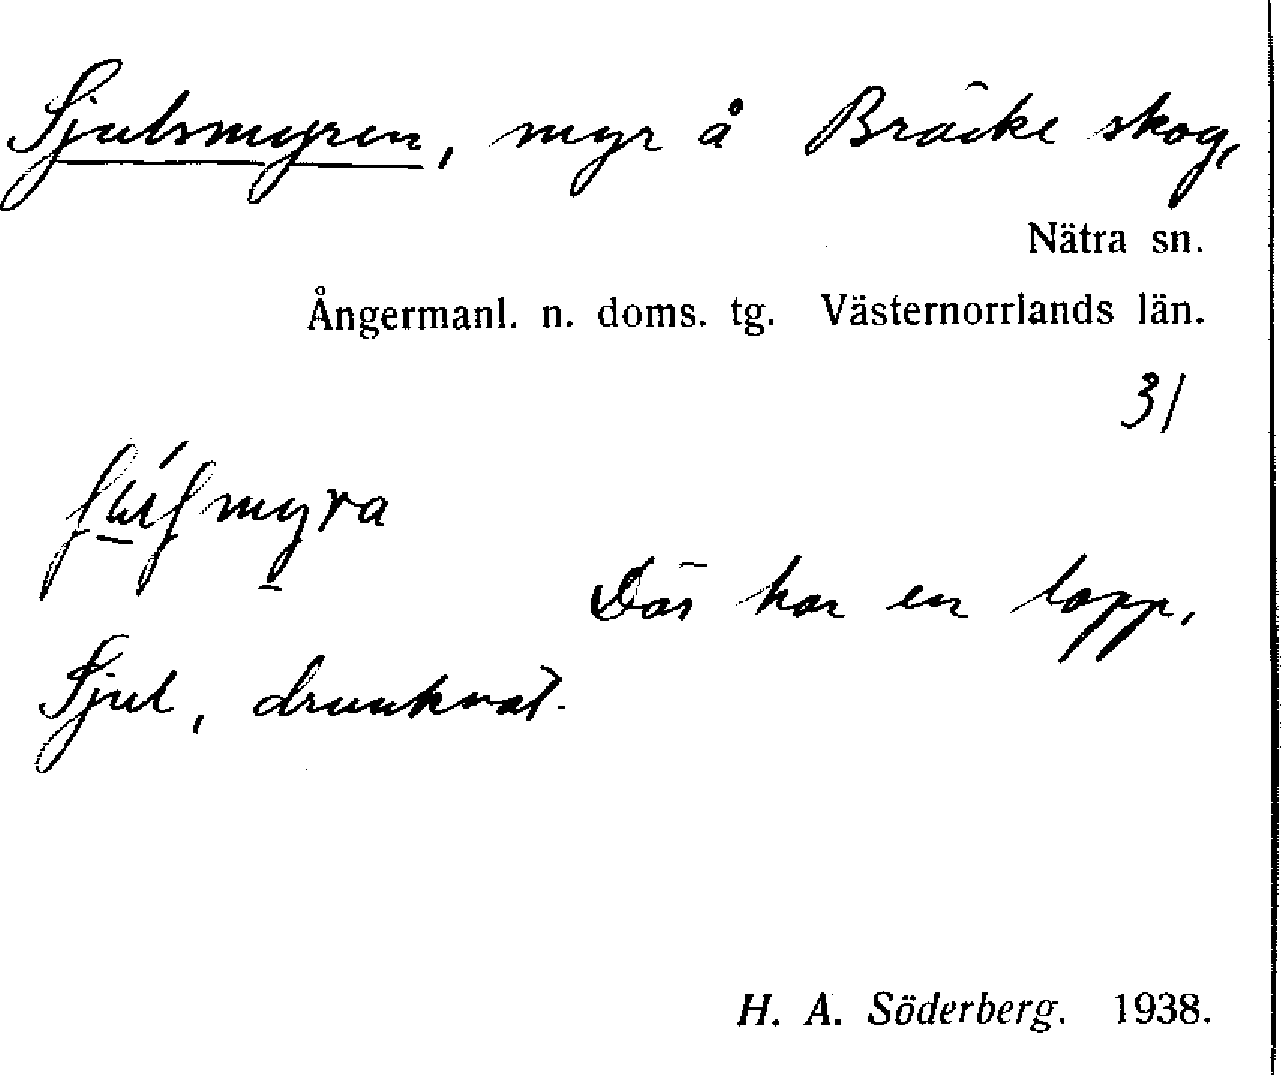 Sjulsmyren, myr å Bräcke skog,
Nätra sn.
Ångermanl. n. doms. tg. Västernorrlands län.
31
Där har en lapp,
Sjul, drunknat.
H. A. Söderberg. 1938.